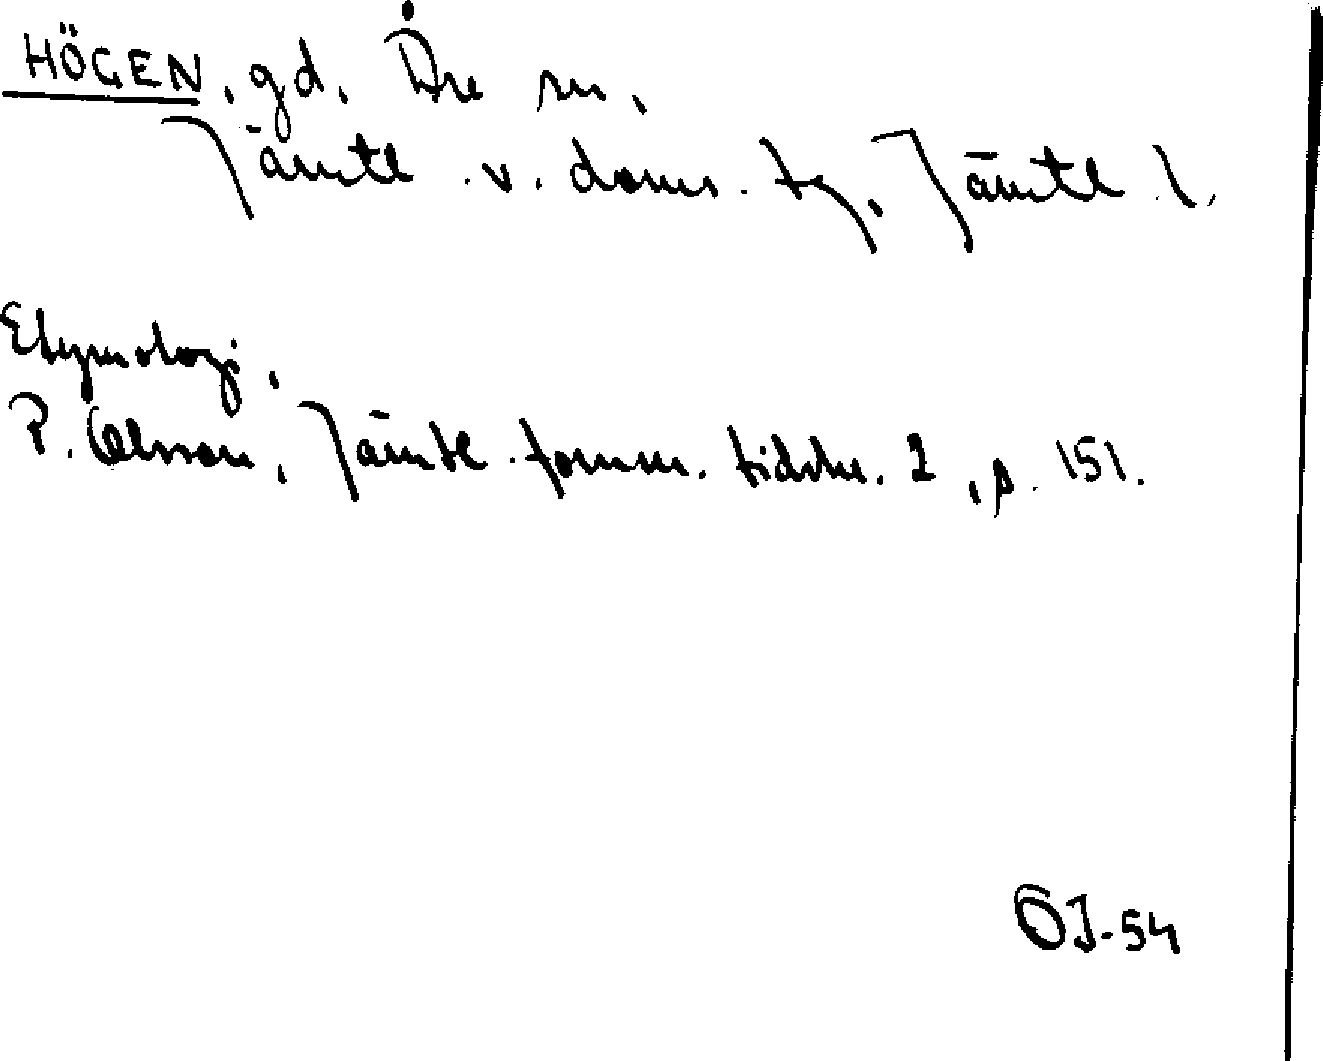 HÖGEN, gd, Åre sn,
Jämtl. v. doms. tg, Jämtl. l.
Etymologi.
P. Olsson, Jämtl. fornm. tidskr. 2, s. 151.
ÖJ-54